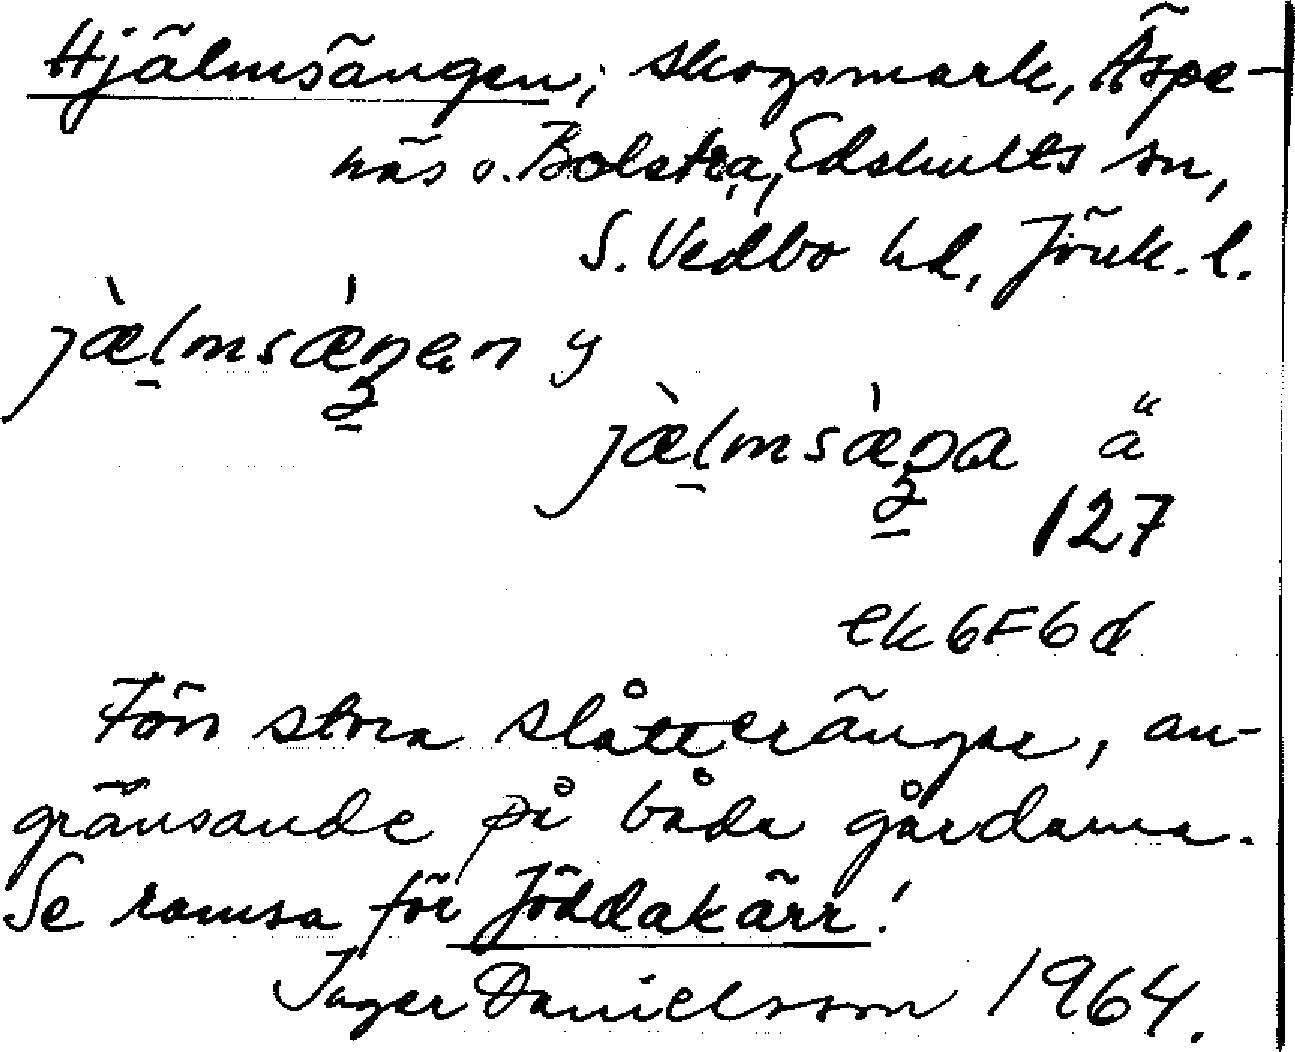 Hjälmsängen; skogsmark, Äspe-
näs o. Bolstra, Edshults sn,
S. Vedbo hd, Jönk. l.
jæ̀lmsæ̀ŋen y
jæ̀lmsæ̀ŋa ä
127
ek 6F6d
Förr stora slåtterängar, an-
gränsande på båda gårdarna.
Se ramsa för Jöddakärr!
Inger Danielsson 1964.